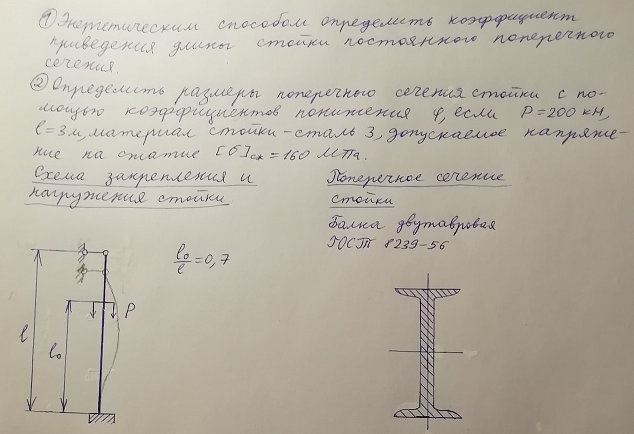 ① Энергетическим способом определить коэффициент
приведения длины стойки постоянного поперечного
сечения.
② Определить размеры поперечного сечения стойки с по-
мощью коэффициентов понижения φ, если P=200 кН,
l=3м, материал стойки-сталь 3, допускаемое напряже-
ние на сжатие [σ]сж=160 МПа.
Схема закрепления и
нагружения стойки
Поперечное сечение
стойки
Балка двутавровая
ГОСТ 8239-56
l₀/l=0,7
P
l
l₀